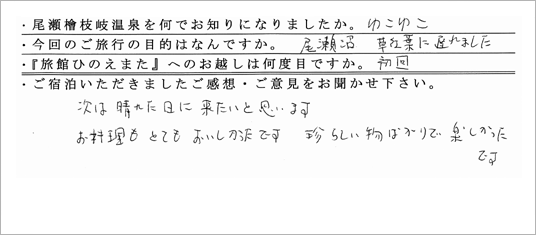 ・尾瀬檜枝岐温泉を何でお知りになりましたか。 ゆこゆこ
・今回のご旅行の目的はなんですか。 尾瀬沼 草紅葉に遅れました
・『旅館ひのえまた』へのお越しは何度目ですか。 初回
・ご宿泊いただきましたご感想・ご意見をお聞かせ下さい。
次は晴れた日に来たいと思います
お料理もとてもおいしかったです 珍らしい物ばかりで楽しかった
です